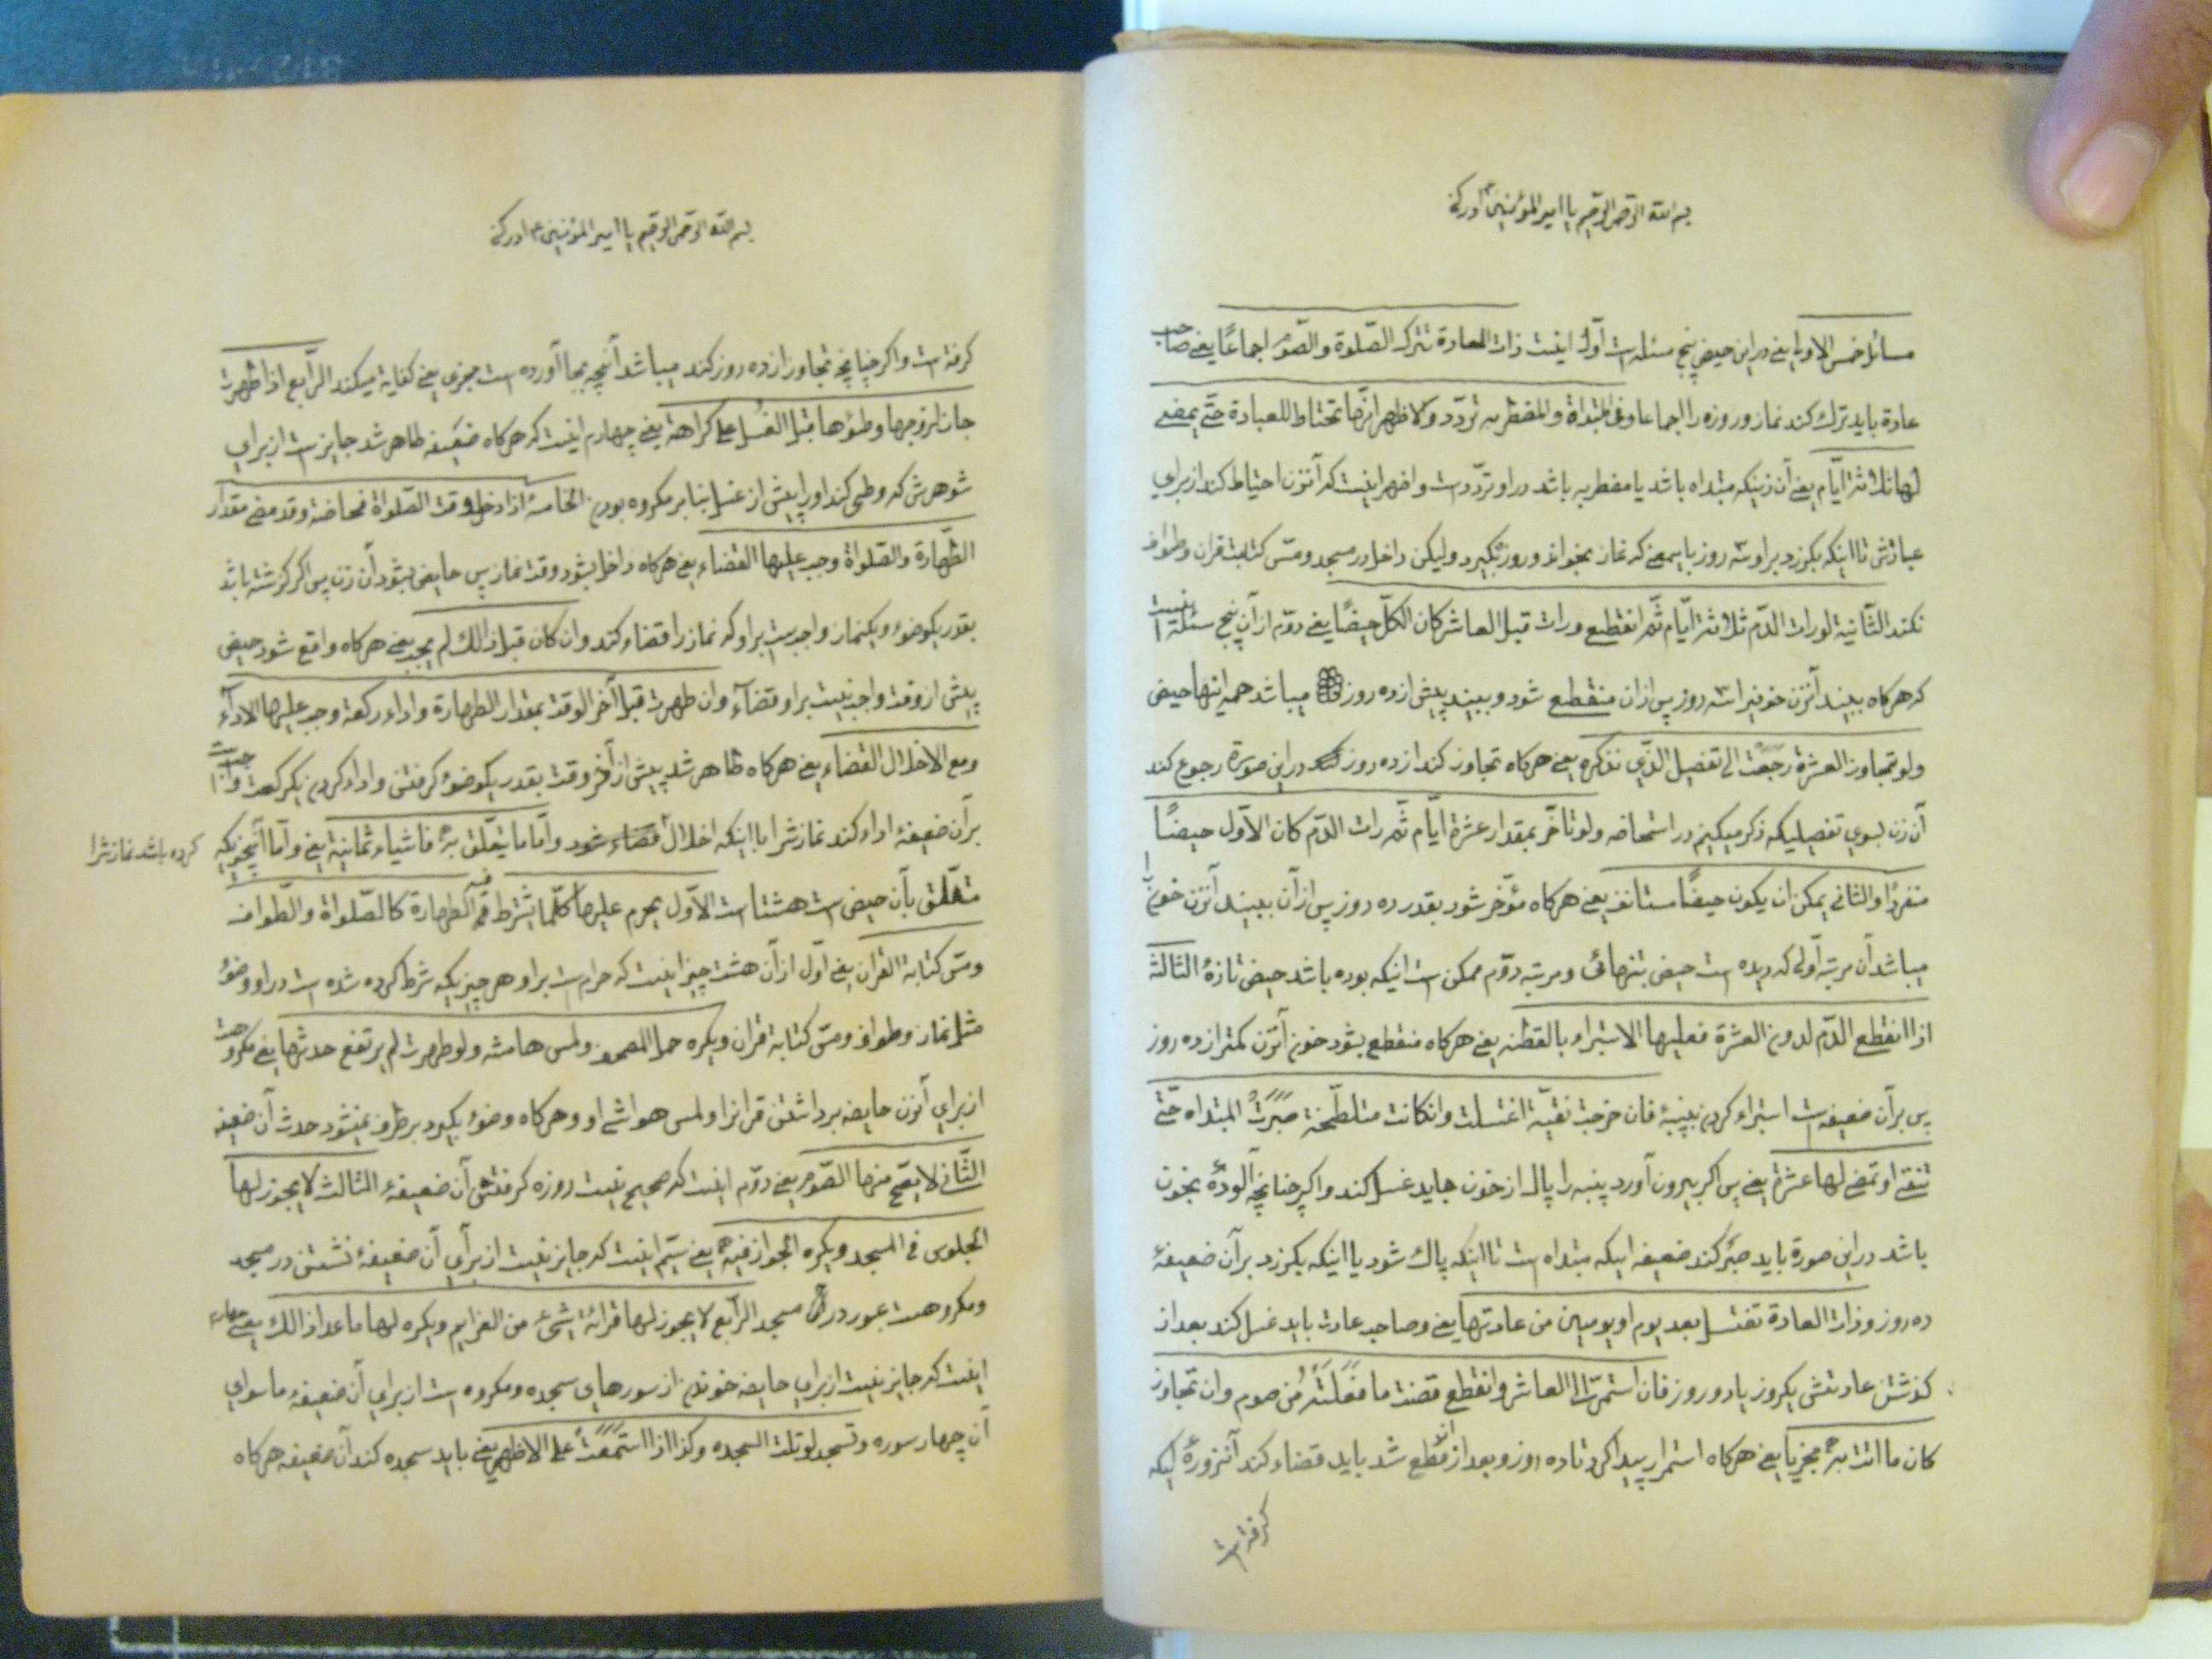 بسم الله الرحمن الرحیم یا امیر المؤمنین ادرکنی
مسائل خمس الاولی یعنی در این حیض پنج مسئله است اول اینست ذات العادة تترک الصلوة والصوم اجماعًا یعنی صاحب
عادة باید ترک کند نماز و روزه را اجماعا و فی المبتداة والمضطربه تردد والاظهر انها تحتاط للعبادة حتی یمضی
لها ثلاثة ایام یعنی آن زنیکه مبتداه باشد یا مضطربه باشد در او تردد است و اظهر اینست که آنزن احتیاط کند از برای
عبادتش تا اینکه بگذرد بر او سه روز باینمعنی که نماز بخواند و روزه بگیرد ولیکن داخل در مسجد و مس کتابت قران و طواف
نکند الثانیة لو رات الدم ثلاثة ایام ثم انقطع و رات قبل العاشر کان الکل حیضًا یعنی دوم از آن پنج مسئله اینست
که هرکاه ببیند آنزن خونیرا سه روز پس ازان منقطع شود و ببیند پیش از ده روز میباشد همه اینها حیض
ولو تجاوز العشرة رجعت الی تفصیل الذی نذکره یعنی هرکاه تجاوز کند از ده روز در این صورة رجوع کند
آن زن بسوی تفصیلیکه ذکر میکنیم در استحاضه ولو تاخر بمقدار عشرة ایام ثم رات الدم کان الاول حیضًا
منفردًا والثانی یمکن ان یکون حیضًا مستانف یعنی هرکاه مؤخر شود بقدر ده روز پس ازآن ببیند آنزن خونیرا
میباشد آن مرتبه اولی که دیده است حیض بتنهائی و مرتبه دوم ممکن است اینکه بوده باشد حیض تازهٔ الثالثة
اذا انقطع الدم لدون العشرة فعلیها الاستبراء بالقطنه یعنی هرکاه منقطع بشود خون آنزن کمتر از ده روز
پس بر آن ضعیفه است استبراء کردن بپنبهٔ فان خرجت نقیّة اغتسلت وانکانت متلطّخة صَبَرَت المبتداه حتی
تنقی او تمضی لها عشرة یعنی پس اکر بیرون آورد پنبه را پاک از خون باید غسل کند و اکر چنانچه آلودهٔ بخون
باشد در این صورة باید صبر کند ضعیفه ایکه مبتداه است تا اینکه پاک شود یا اینکه بکذرد بر آن ضعیفهٔ
ده روز و ذات العادة تغتسل بعد یوم او یومین من عادتها یعنی و صاحب عادت باید غسل کند بعد از
کذشتن عادتش یکروز یا دو روز فان استمر الی العاشر وانقطع قضت ما فعلته من صوم وان تجاوز
کان ما اتت به مجزیا یعنی هرکاه استمرار پیدا کرد تا ده روز و بعد ازان قطع شد باید قضاء کند آنروزهٔ ایکه
کرفته است
بسم الله الرحمن الرحیم یا امیر المؤمنین ادرکنی
کرفته است و اکر چنانچه تجاوز از ده روز کند میباشد آنچه بجا آورده است مجزی یعنی کفایة میکند الرابع اذا طهرت
جاز لزوجها وطئوها قبل الغسل علی کراهة یعنی چهارم اینست که هرکاه ضعیفه طاهر شد جایز است از برای
شوهرش که وطی کند او را پیش از غسل بنا بر مکروه بودن الخامسة اذا دخل وقت الصلواة فحاضة وقد مضی مقدار
الطهارة والصلواة وجب علیها القضاء یعنی هرکاه داخل بشود وقت نماز پس حایض بشود آن زن پس اکر کزشته باشد
بقدر یکوضوء و یکنماز واجبست بر او که نماز را قضاء کند وان کان قبل ذالک لم یجب یعنی هرکاه واقع شود حیض
پیش از وقت واجب نیست بر او قضآء وان طهرت قبل آخر الوقت بمقدار الطهارة واداء رکعة وجب علیها الادآء
ومع الاخلال القضاء یعنی هرکاه طاهر شد پیش از آخر وقت بقدر یکوضوء کرفتن و اداء کردن یکرکعت واجب است
بر آن ضعیفهٔ اداء کند نمازشرا با اینکه اخلال قضاء شود واما ما یتعلّق به فاشیاء ثمانیة یعنی و اما آنچیزیکه
کرده باشد نمازشرا
متعلق بآن حیض است هشتا است الاوّل یحرم علیها کلّما یشترط فیه الطهارة کالصلواة والطواف
ومس کتابة القران یعنی اول از آن هشت چیز اینست که حرام است بر او هر چیزیکه شرط کرده شده است در او وضوء
مثل نماز و طواف و مس کتابة قران ویکره حمل المصحف ولمس هامشه ولو طهرت لم یرتفع حدثها یعنی مکروهست
از برای آنزن حایضه برداشتن قرانرا و لمس هواشی او و هرکاه وضوء بکیرد برطرف نمیشود حدث آن ضعیفه
الثانی لا یصح منها الصوم یعنی دوم اینست که صحیح نیست روزه کرفتن آن ضعیفهٔ الثالث لا یجوز لها
الجلوس فی المسجد ویکره الجواز فیه یعنی سیم اینست که جایز نیست از برای آن ضعیفهٔ نشستن در مسجد
و مکروهست عبور در مسجد الرابع لا یجوز لها قرائة شیء من العزایم ویکره لها ما عدا ذالک یعنی چهارم
اینست که جایز نیست از برای حایضه خوندن از سورهای سجده و مکروه است از برای آن ضعیفهٔ ماسوای
آن چهار سوره وتسجد لو تلت السجده وکذا اذا استمعت علی الاظهر یعنی باید سجده کند آن ضعیفه هرکاه